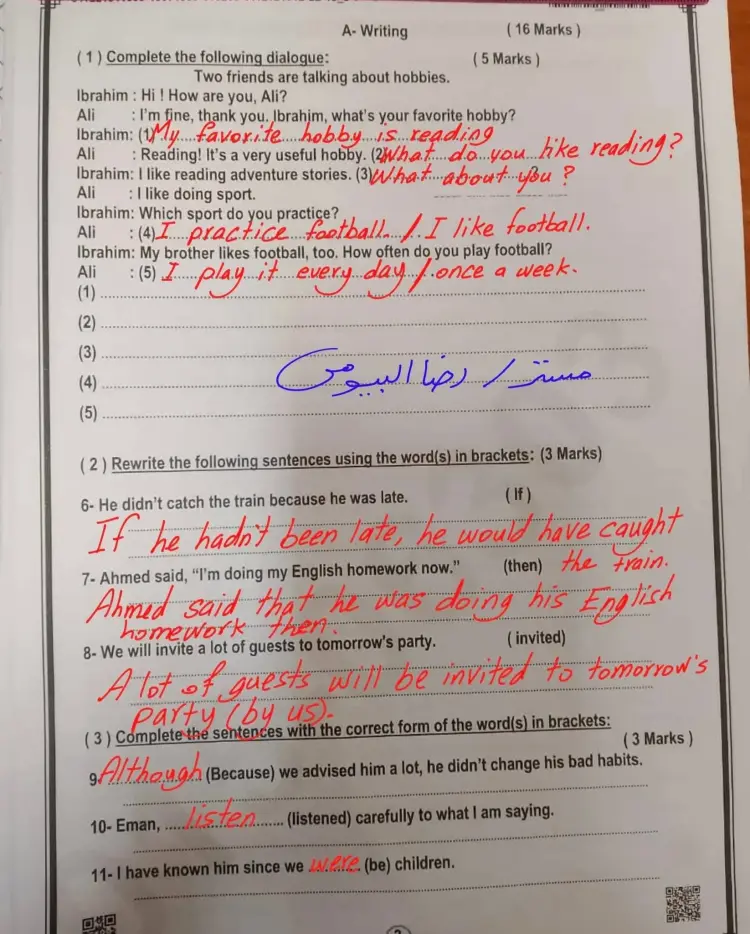 A- Writing ( 16 Marks )
( 1 ) Complete the following dialogue: ( 5 Marks )
Two friends are talking about hobbies.
Ibrahim : Hi ! How are you, Ali?
Ali : I'm fine, thank you. Ibrahim, what's your favorite hobby?
Ibrahim: (1) My favorite hobby is reading
Ali : Reading! It's a very useful hobby. (2) What do you like reading?
Ibrahim: I like reading adventure stories. (3) What about you?
Ali : I like doing sport.
Ibrahim: Which sport do you practice?
Ali : (4) I practice football. / I like football.
Ibrahim: My brother likes football, too. How often do you play football?
Ali : (5) I play it every day / once a week.
(1)
(2)
(3)
(4) مستر / رضا البيومى
(5)
( 2 ) Rewrite the following sentences using the word(s) in brackets: (3 Marks)
6- He didn't catch the train because he was late. ( If )
If he hadn't been late, he would have caught
the train.
7- Ahmed said, "I'm doing my English homework now." (then)
Ahmed said that he was doing his English
homework then.
8- We will invite a lot of guests to tomorrow's party. ( invited)
A lot of guests will be invited to tomorrow's
party (by us).
( 3 ) Complete the sentences with the correct form of the word(s) in brackets:
( 3 Marks )
9 Although (Because) we advised him a lot, he didn't change his bad habits.
10- Eman, ..... listen ...... (listened) carefully to what I am saying.
11- I have known him since we were (be) children.